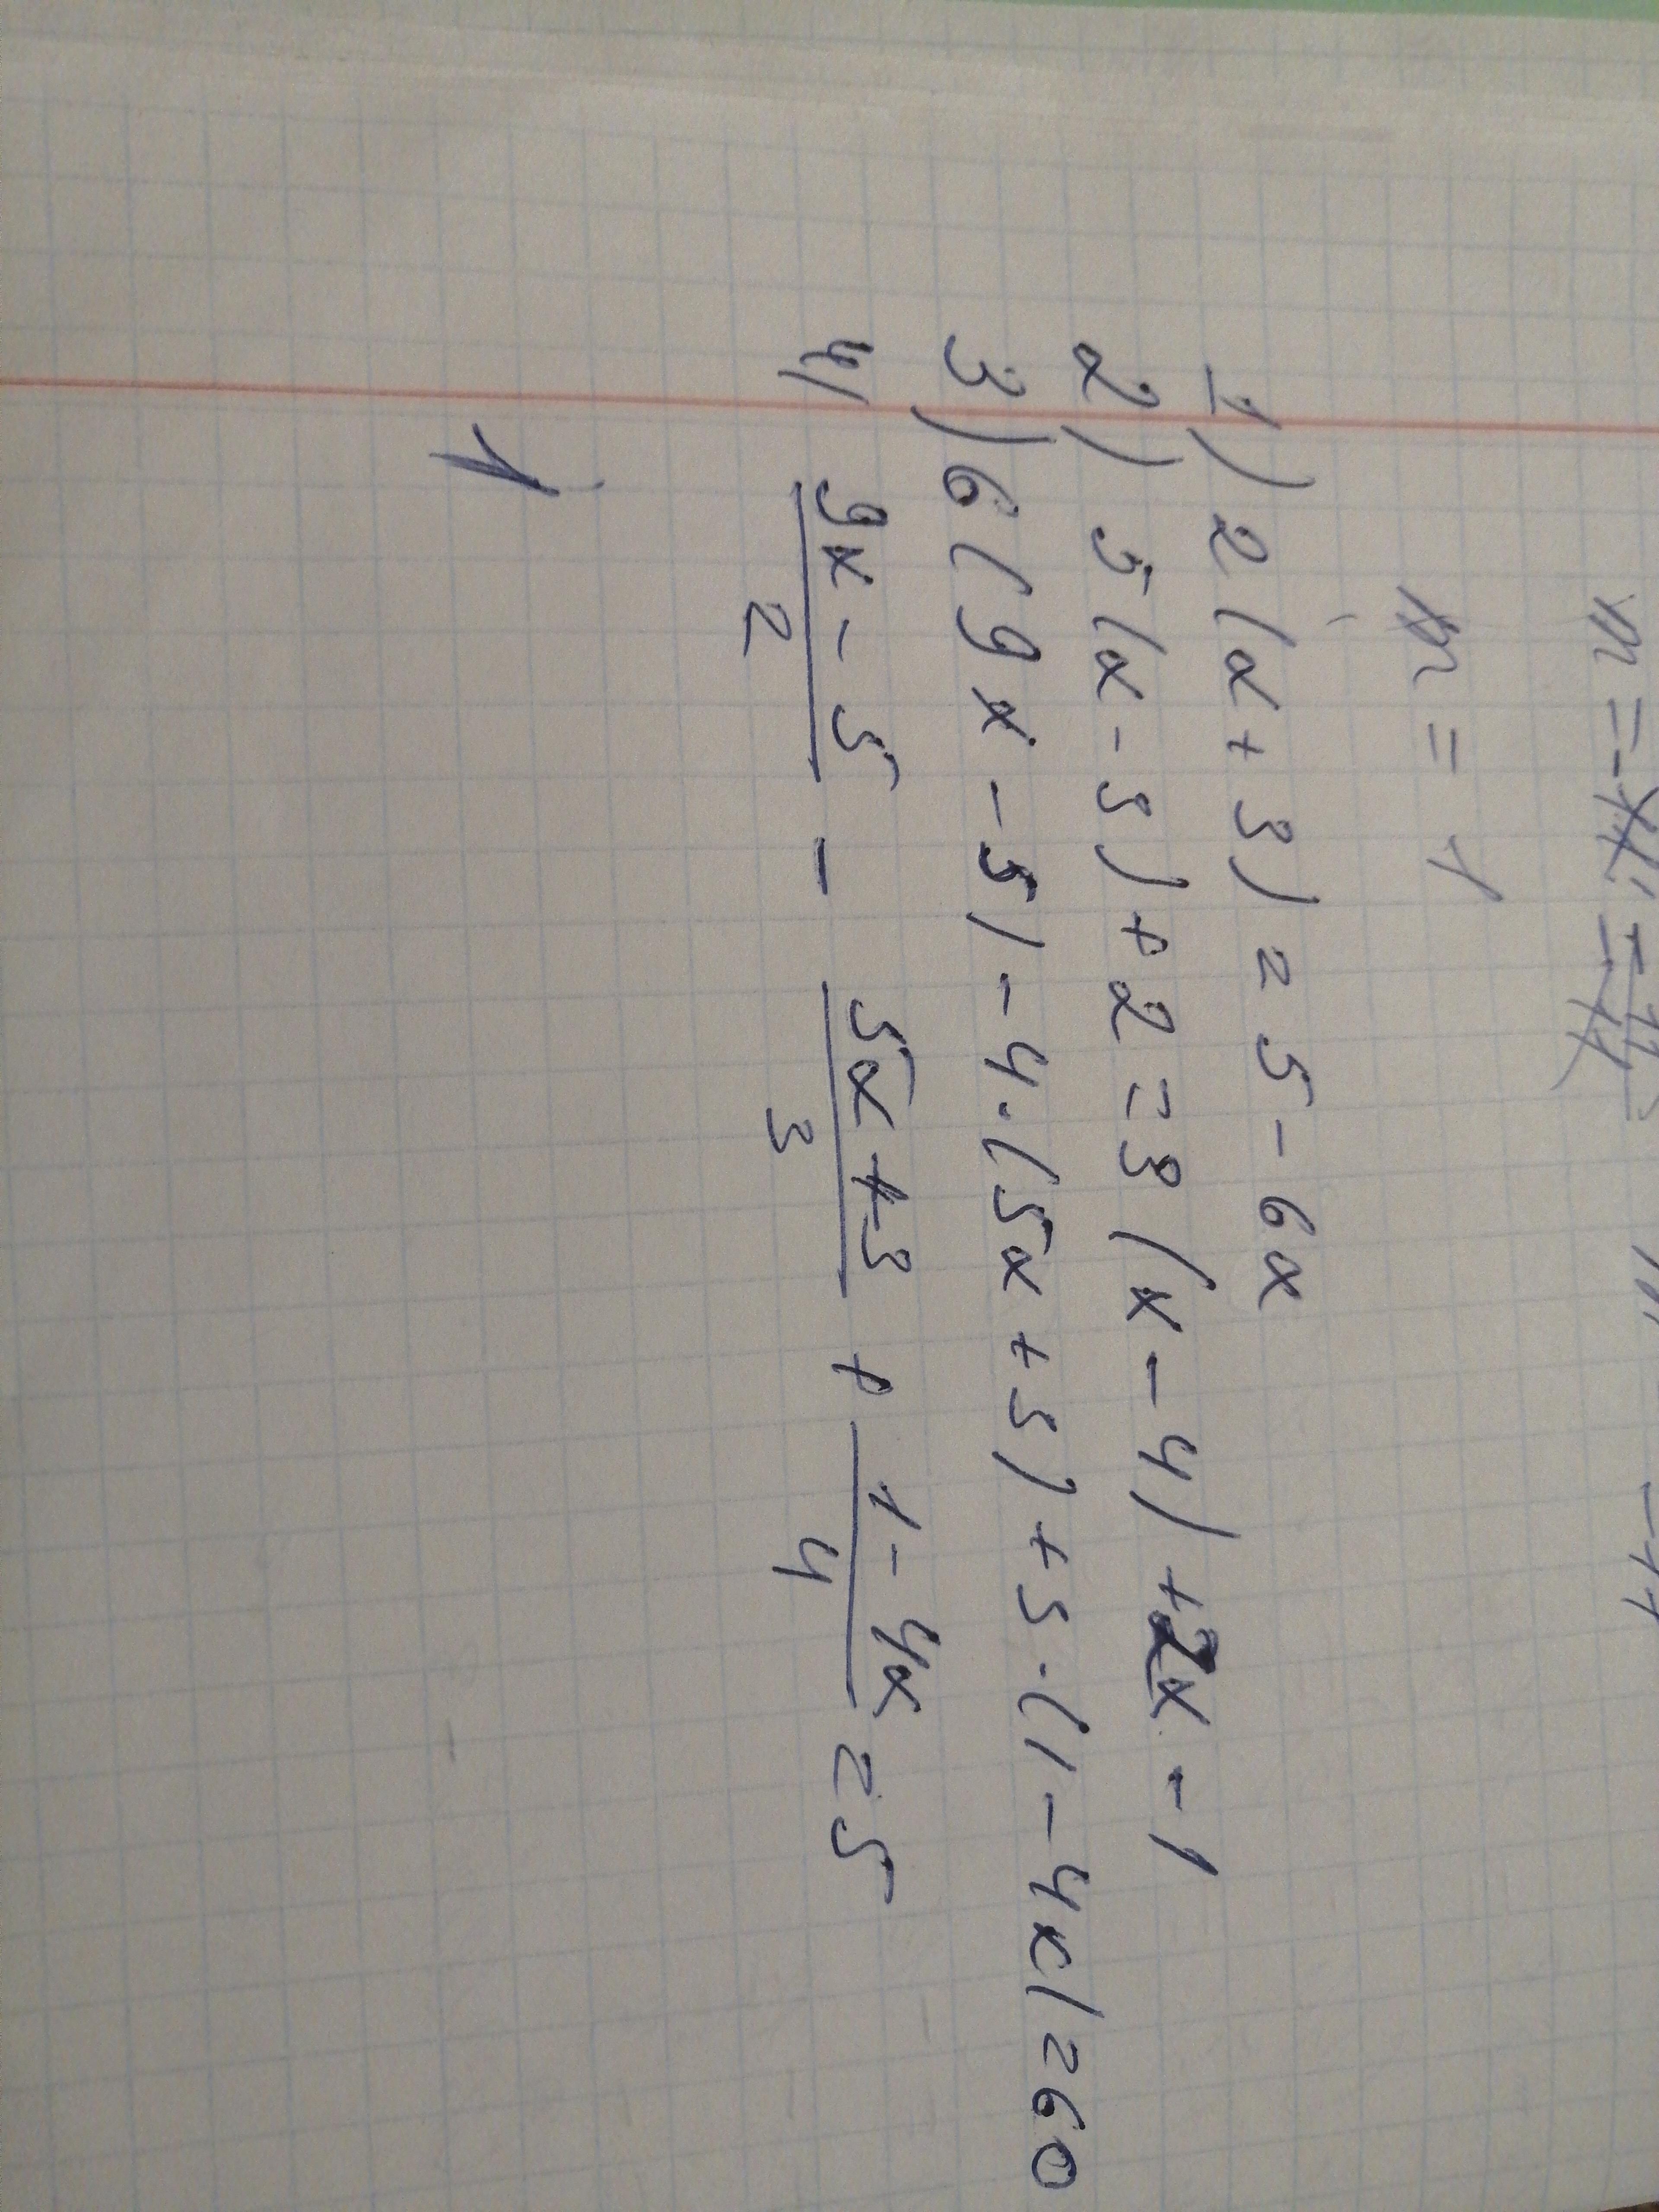 m = 1
1) 2(x + 3) = 5 - 6x
2) 5(x - 3) + 2 = 3(x - 4) + 2x - 1
3) 6(9x - 5) - 4·(5x + 3) + 3·(1 - 4x) = 60
4) \frac{9x - 5}{2} - \frac{5x + 3}{3} + \frac{1 - 4x}{4} = 5
1